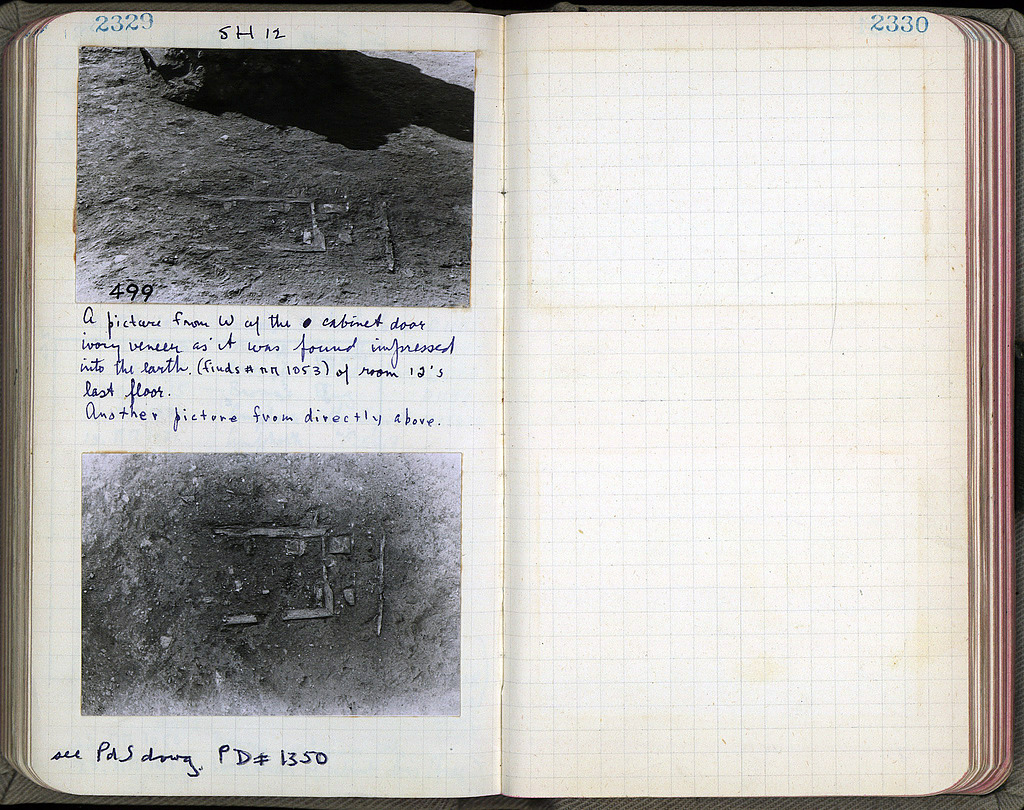 2329
SH 12
499
A picture from W of the cabinet door
ivory veneer as it was found impressed
into the earth. (finds # nn 1053) of room 12's
last floor.
Another picture from directly above.
see PdS dowg. PD# 1350
2330